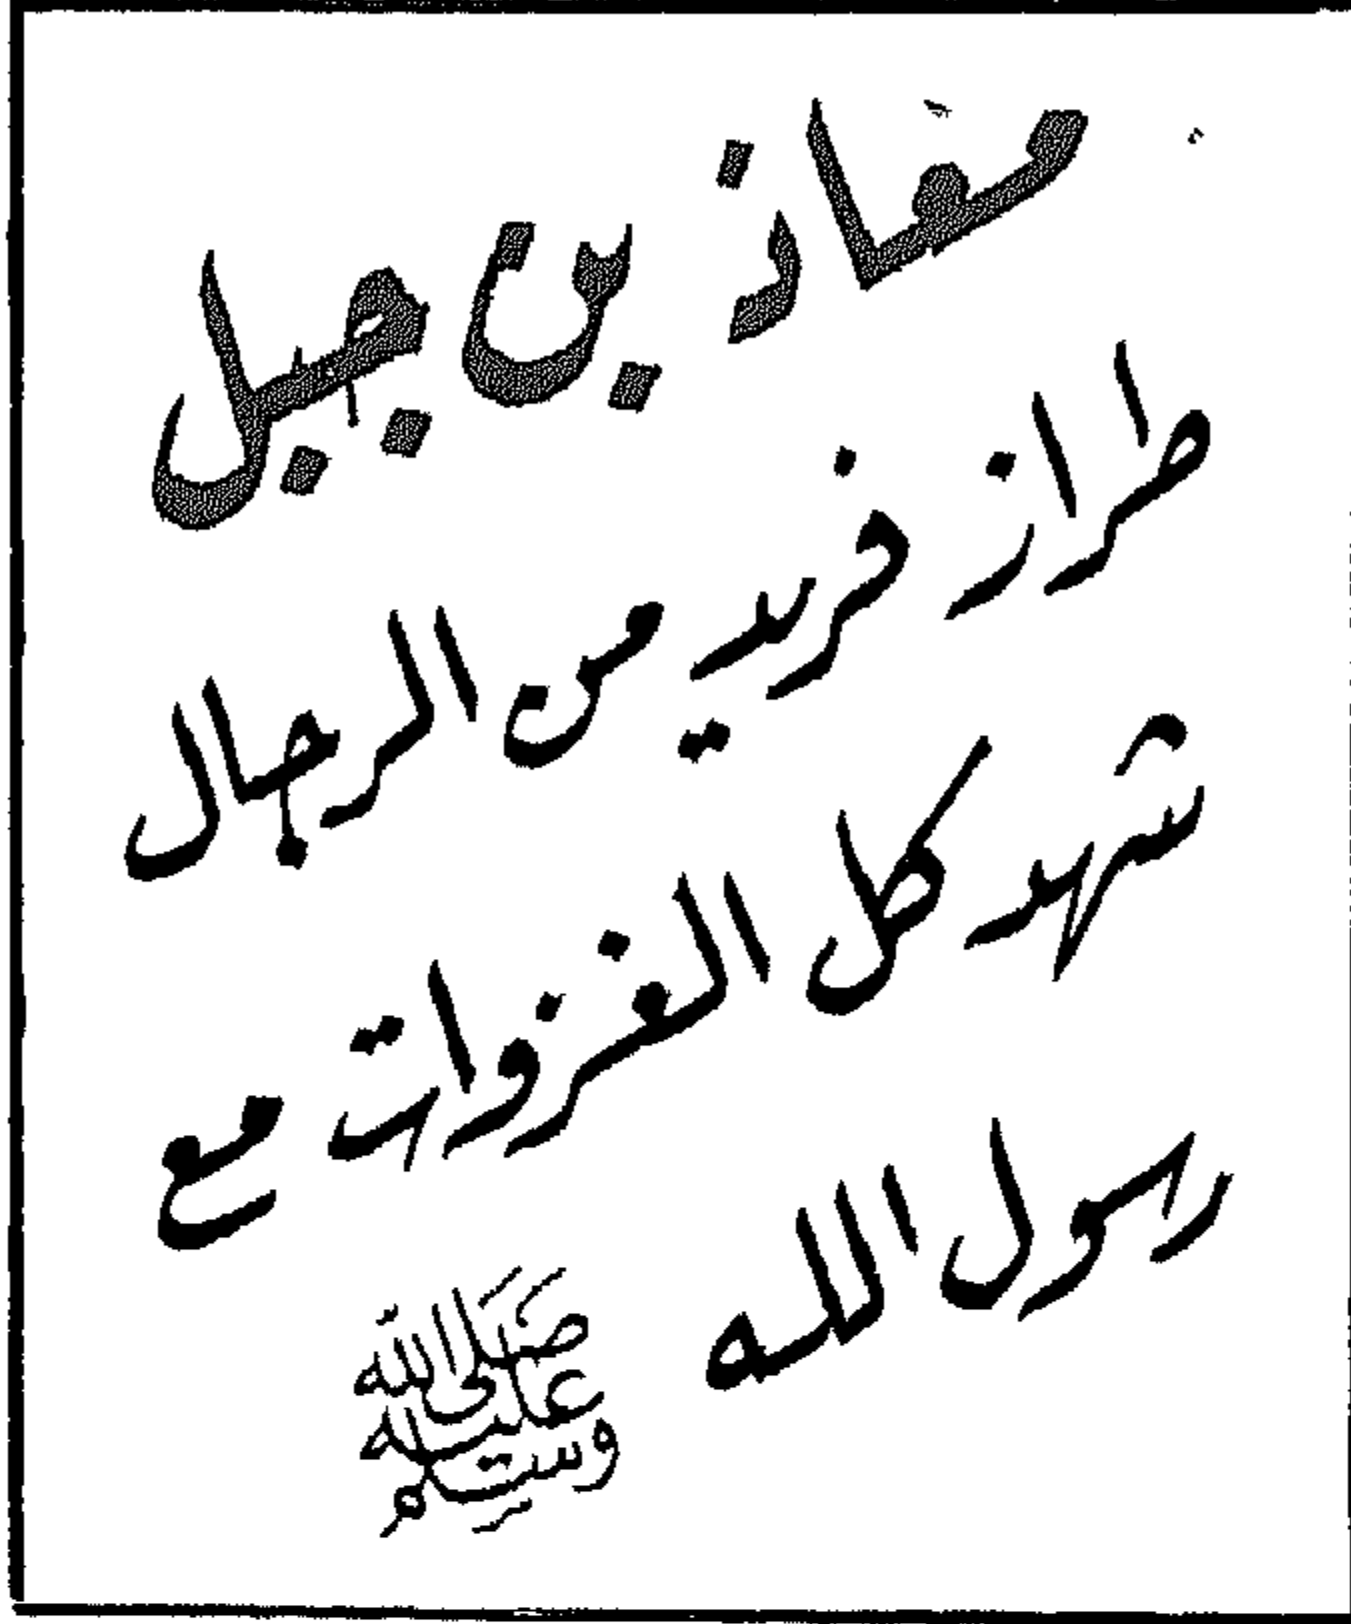 معاذ بن جبل
طراز فريد من الرجال
شهد كل الغزوات مع
رسول الله
صلى الله
عليه
وسلم